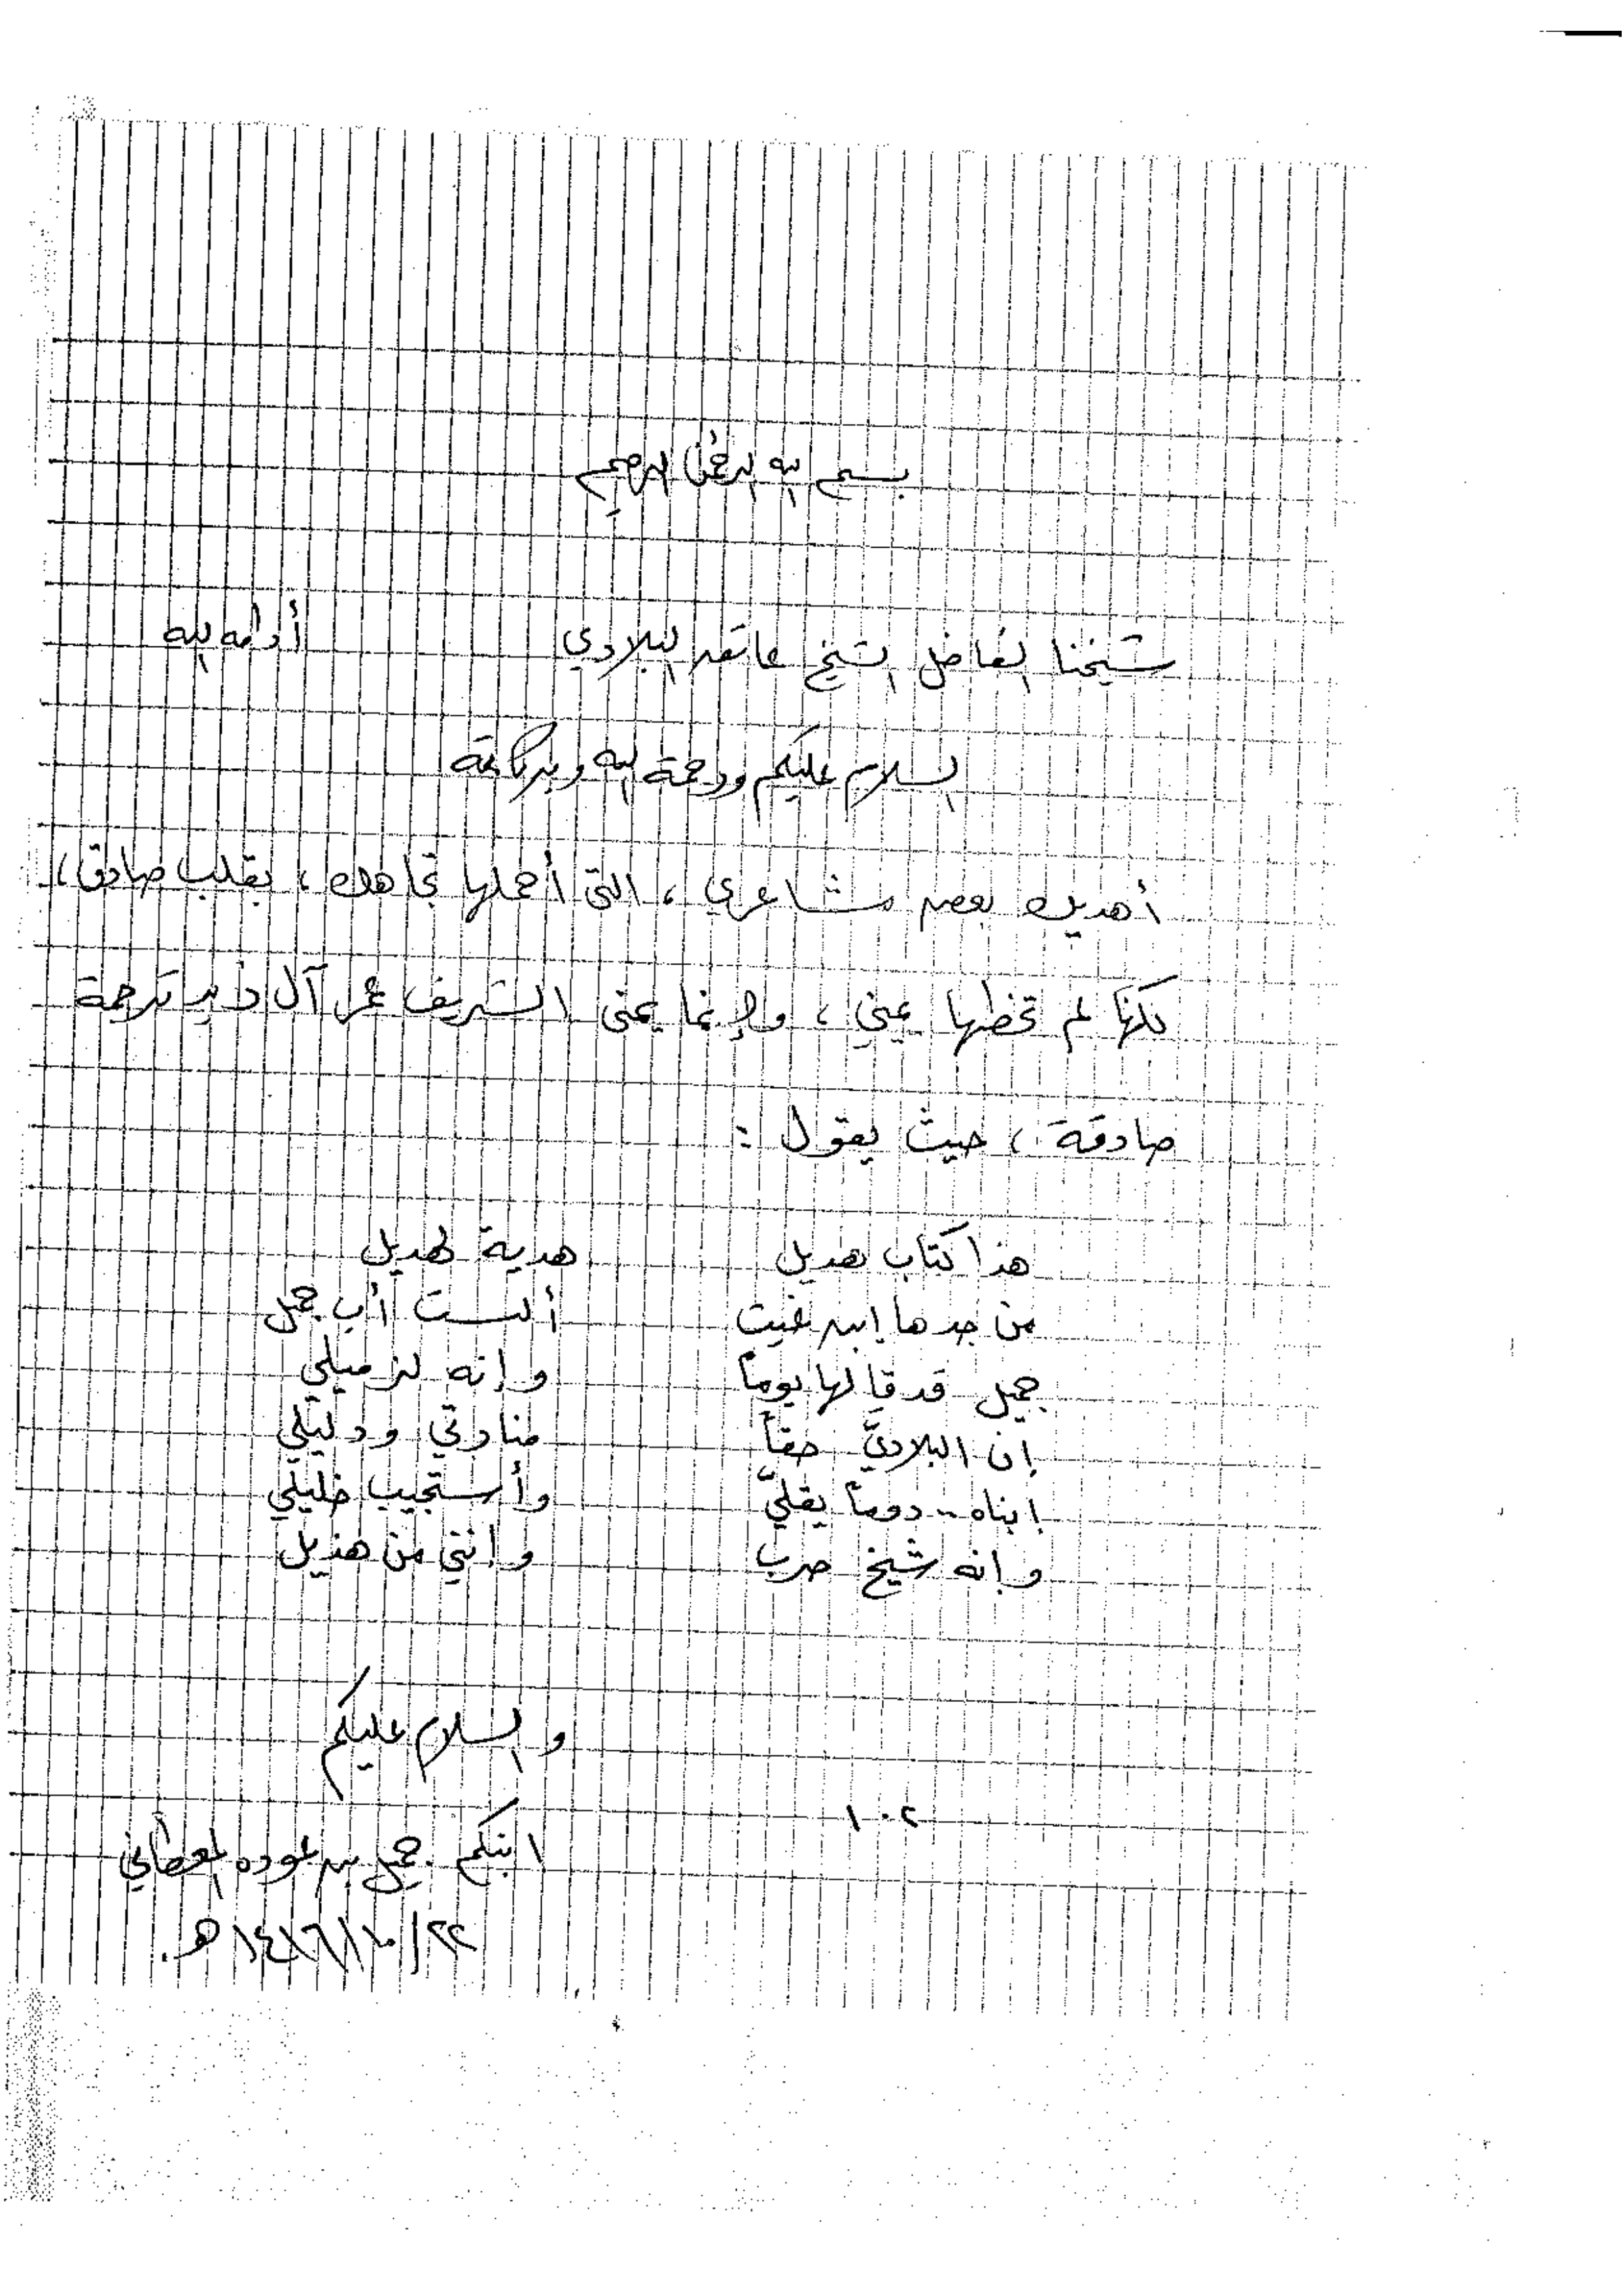 بسم الله الرحمن الرحيم
شيخنا الفاضل الشيخ عاتق البلادي أدامه الله
السلام عليكم ورحمة الله وبركاته
أهديك بعض مشاعري، التي أحملها تجاهك، بقلب صادق،
لكنها لم تخطها يميني، وإنما يمنى الشريف عمر آل زيد ترجمة
صادقة، حيث يقول:
هذا كتاب هديل هدية لهديل
من جدها ابن غيث ألست أب جميل
جميل قد قالها يوماً وإنه لزميلي
إن البلاديَّ حقاً منارتي ودليلي
ابناه.. دوماً بقلبي وأستجيب خليلي
وإنه شيخ حرب وإنني من هذيل
والسلام عليكم
١٠٢
ابنكم جميل بن عوده المعطاني
٢٢/١٠/١٤١٦هـ.